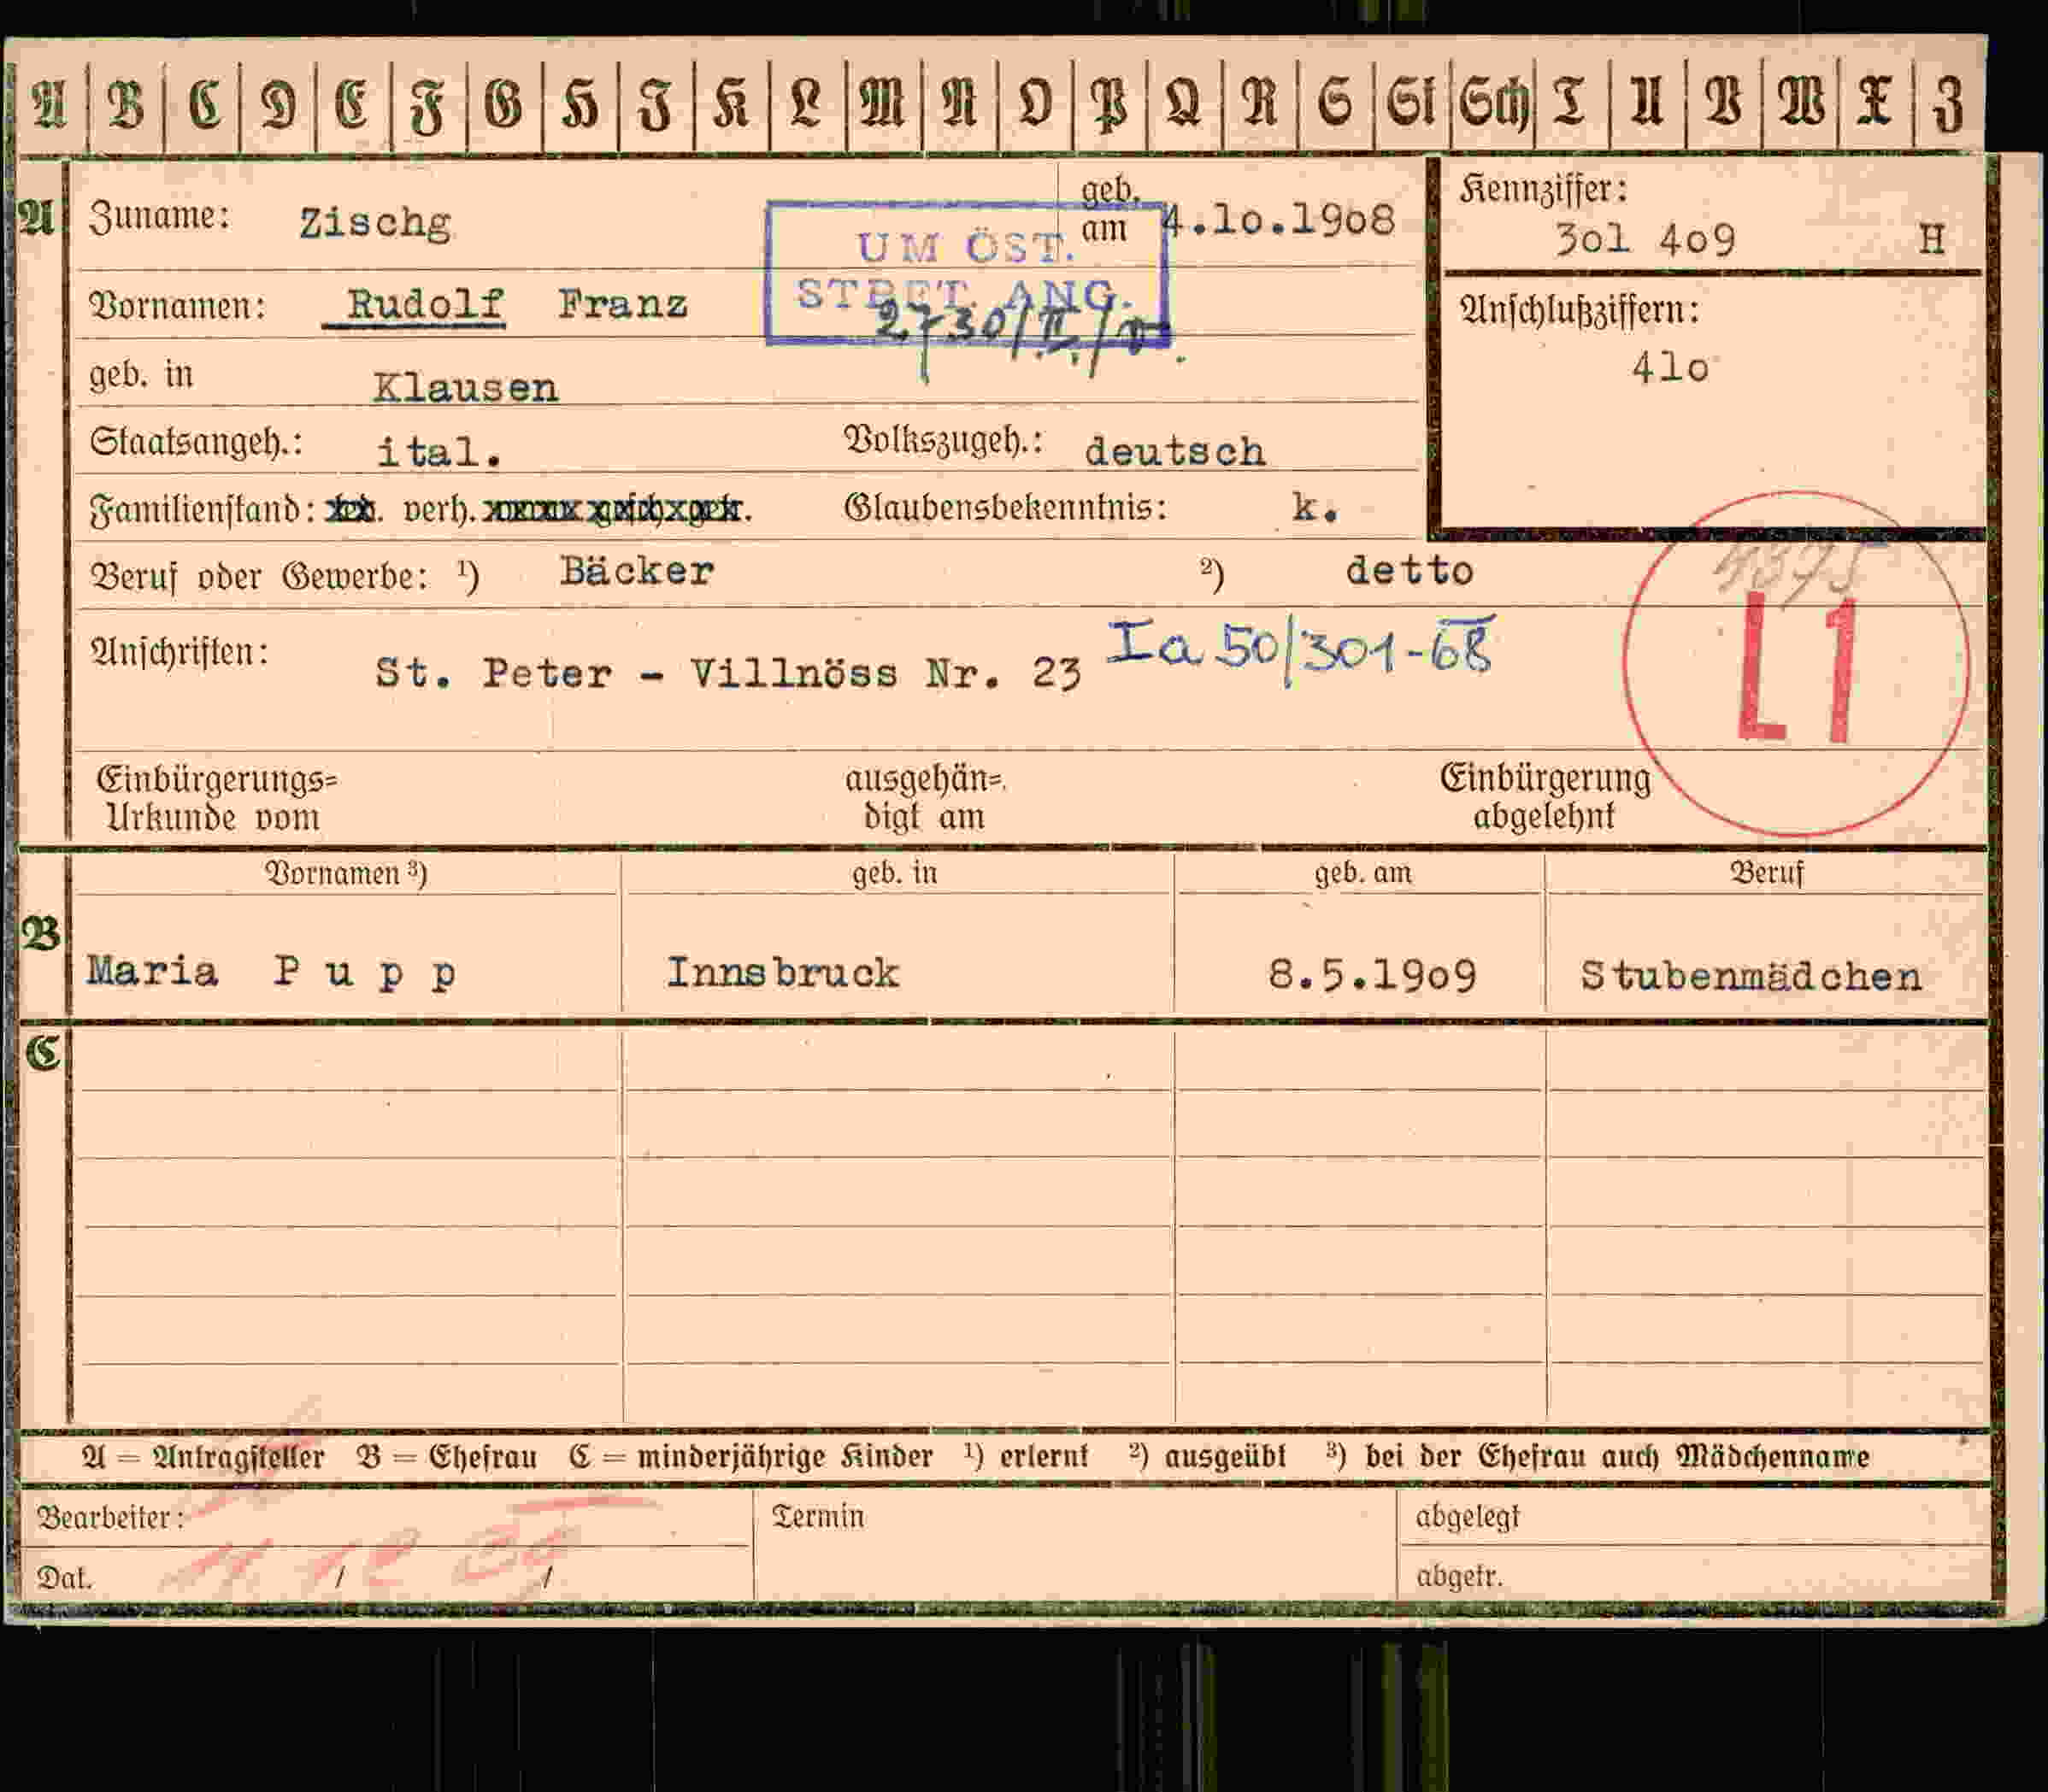 A B C D E F G H I K L M N O P Q R S St Sch T U V W X Z
A Zuname: Zischg geb. am 4.10.1908
Kennziffer:
301 409 H
UM ÖST.
STBET. ANG.
2730/II/
Vornamen: Rudolf Franz
Anschlußziffern:
410
geb. in Klausen
Staatsangeh.: ital. Volkszugeh.: deutsch
Familienstand: verh. Glaubensbekenntnis: k.
Beruf oder Gewerbe: ¹) Bäcker ²) detto
L1
Anschriften: St. Peter - Villnöss Nr. 23 Ia 50/301-68
Einbürgerungs= ausgehän= Einbürgerung
Urkunde vom digt am abgelehnt
Vornamen ³) geb. in geb. am Beruf
B Maria Pupp Innsbruck 8.5.1909 Stubenmädchen
C
A = Antragsteller B = Ehefrau C = minderjährige Kinder ¹) erlernt ²) ausgeübt ³) bei der Ehefrau auch Mädchenname
Bearbeiter: Termin abgelegt
Dat. / / abgetr.